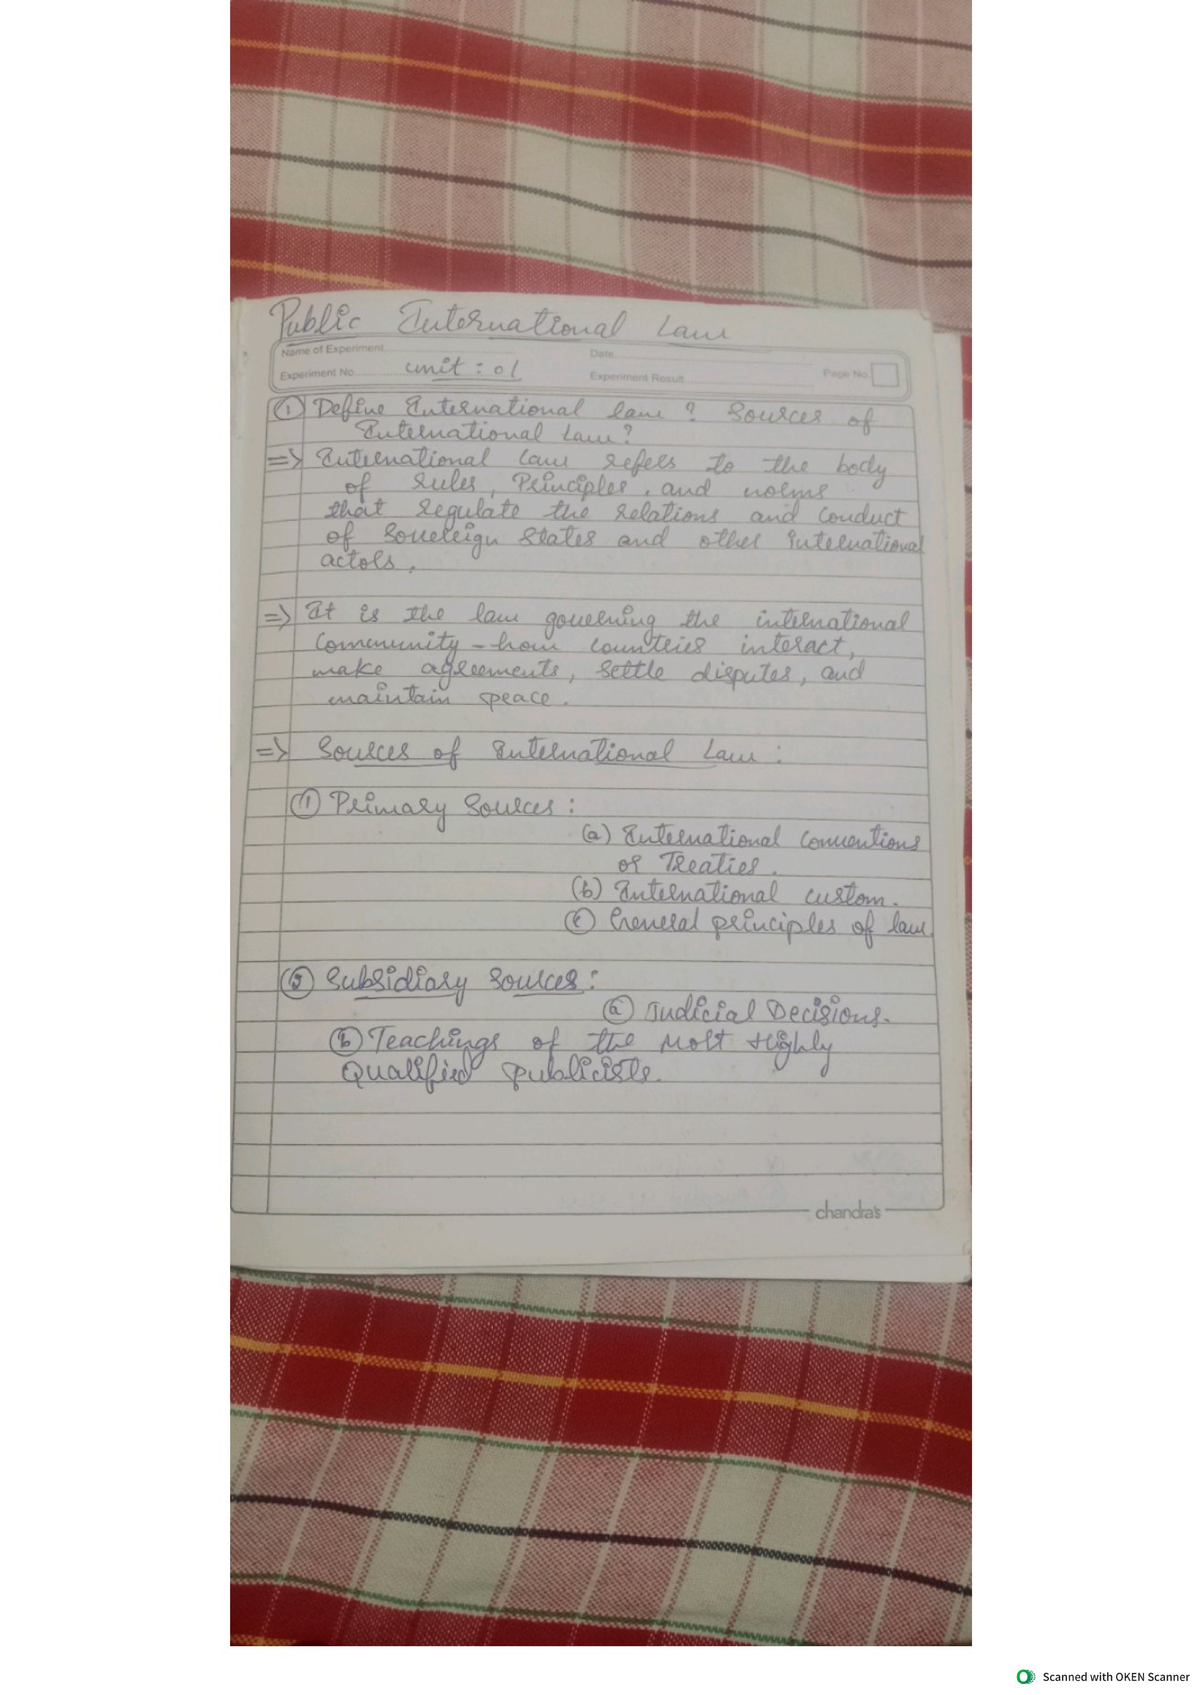 Public International Law
Name of Experiment
Date
Experiment No. unit : 01
Experiment Result
Page No.
① Define International law ? Sources of
International Law?
=> International law refers to the body
of rules, Principles, and norms
that regulate the relations and conduct
of Sovereign States and other international
actors.
=> It is the law governing the international
Community – how countries interact,
make agreements, settle disputes, and
maintain peace.
=> Sources of International Law :
① Primary Sources :
(a) International Conventions
or Treaties.
(b) International custom.
(c) General principles of law
② Subsidiary Sources :
(a) Judicial Decisions.
(b) Teachings of the Most Highly
Qualified publicists.
chandra's
Scanned with OKEN Scanner